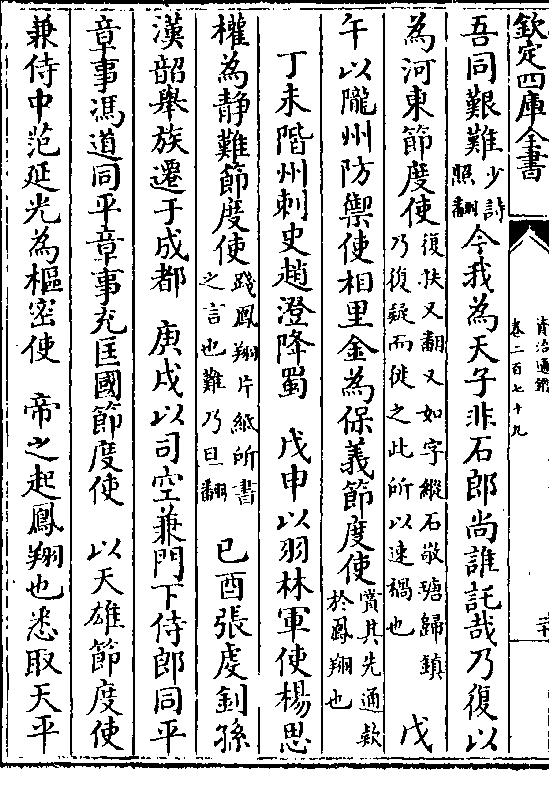 欽定四庫全書
資治通鑑
卷二百七十九
吾同艱難少詩照翻今我為天子非石郎尚誰託哉乃復以
為河東節度使復扶又翻又如字縱石敬瑭歸鎮乃復疑而徙之此所以速禍也 戊
午以隴州防禦使相里金為保義節度使賞其先通欵於鳳翔也
丁未階州刺史趙澄降蜀 戊申以羽林軍使楊思
權為静難節度使踐鳳翔片紙所書之言也難乃旦翻 己酉張虔釗孫
漢韶舉族遷于成都 庚戌以司空兼門下侍郎同平
章事馮道同平章事充匡國節度使 以天雄節度使
兼侍中范延光為樞密使 帝之起鳳翔也悉取天平